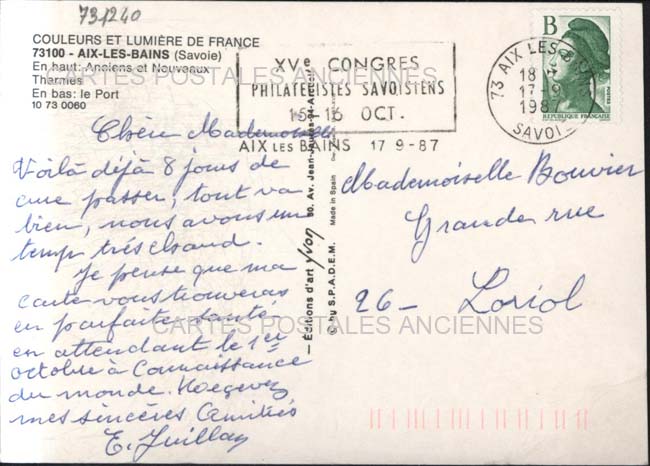 731240
COULEURS ET LUMIÈRE DE FRANCE
73100 - AIX-LES-BAINS (Savoie)
En haut: Anciens et Nouveaux
Thermes
En bas: le Port
10 73 0060
CARTES POSTALES ANCIENNES
Chère Mademoiselle
Voilà déjà 8 jours de
cure passer, tout va
bien, nous avons une
temp très chaud.
Je pense que ma
carte vous trouveras
en parfaite santé
en attendant le 1er
octobre à Connaissance
du monde. Recevez
mes sincères Amitiés
E. Juillan
XVe CONGRES
PHILATELISTES SAVOISIENS
15-16 OCT.
AIX LES BAINS 17 9-87
73 AIX LES BAINS
18 H
17-9
1987
SAVOIE
B
POSTES
REPUBLIQUE FRANÇAISE
— Éditions d'art yvon, 30, Av. Jean-Jaurès-94-Arcueil
© by S.P.A.D.E.M. Made in Spain
Mademoiselle Bouvier
Grande rue
26 - Loriol
CARTES POSTALES ANCIENNES